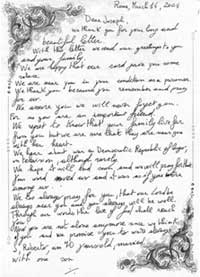 Roma, March 16, 2004
Dear Joseph,
we thank you for your long and
beautiful letter.
With this letter we send our greetings to you
and your family.
We are happy that our card gave you some
We are near you in your condition as a prisoner.
We thank you because you remember and pray
for us.
We assure you we will never forget you.
For us you are an important friend.
We regret to know that your family live far
from you but we are sure that they are near you
with their heart.
We hear about war in Democratic Republic of Congo,
in television, although rarely.
We hope it will end soon and we will pray for that.
You and us and it's as if you were
among us.
We too always pray for you, that our Lord is
always near you and you always will be well.
Through our words this love of God shall reach
you.
You are not alone anymore since we think
of you and we promise you to write always.
I'm Roberto, am 40 years old, married
with one son